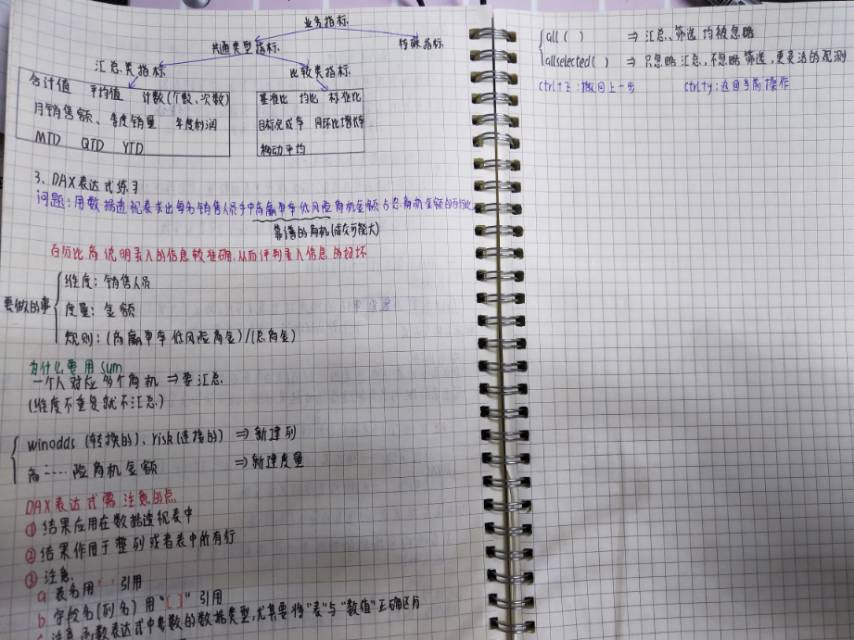 业务指标
共通类型指标 特殊指标
汇总类指标 比较类指标
合计值 平均值 计数(个数、次数)
月销售额、季度销量 年度利润
MTD QTD YTD
基准比 均比 标准化
目标完成率 同环比增长率
移动平均
3、DAX表达式练习
问题:用数据透视表求出每名销售人员手中高赢单率低风险商机金额占总商机金额的百分比
靠谱的商机(成交可能大)
百分比高说明录入的信息较准确,从而评判录入信息的好坏
要做的事
维度:销售人员
度量:金额
规则:(高赢单率低风险商金)/(总商金)
为什么要用sum
一个人对应多个商机 ⇒ 要汇总
(维度不重复就不汇总)
winodds (转换的)、risk(连接的) ⇒ 新建列
高……险商机金额 ⇒ 新建度量
DAX表达式需注意的点
① 结果应用在数据透视表中
② 结果作用于整列或者表中所有行
③ 注意
a 表名用' '引用
b 字段名(列名)用"[ ]"引用
注意函数表达式中参数的数据类型,尤其要将"表"与"数值"正确区分
all( ) ⇒ 汇总、筛选均被忽略
allselected( ) ⇒ 只忽略汇总,不忽略筛选,更灵活的观测
ctrl+z:撤回上一步 ctrl+y:返回当前操作